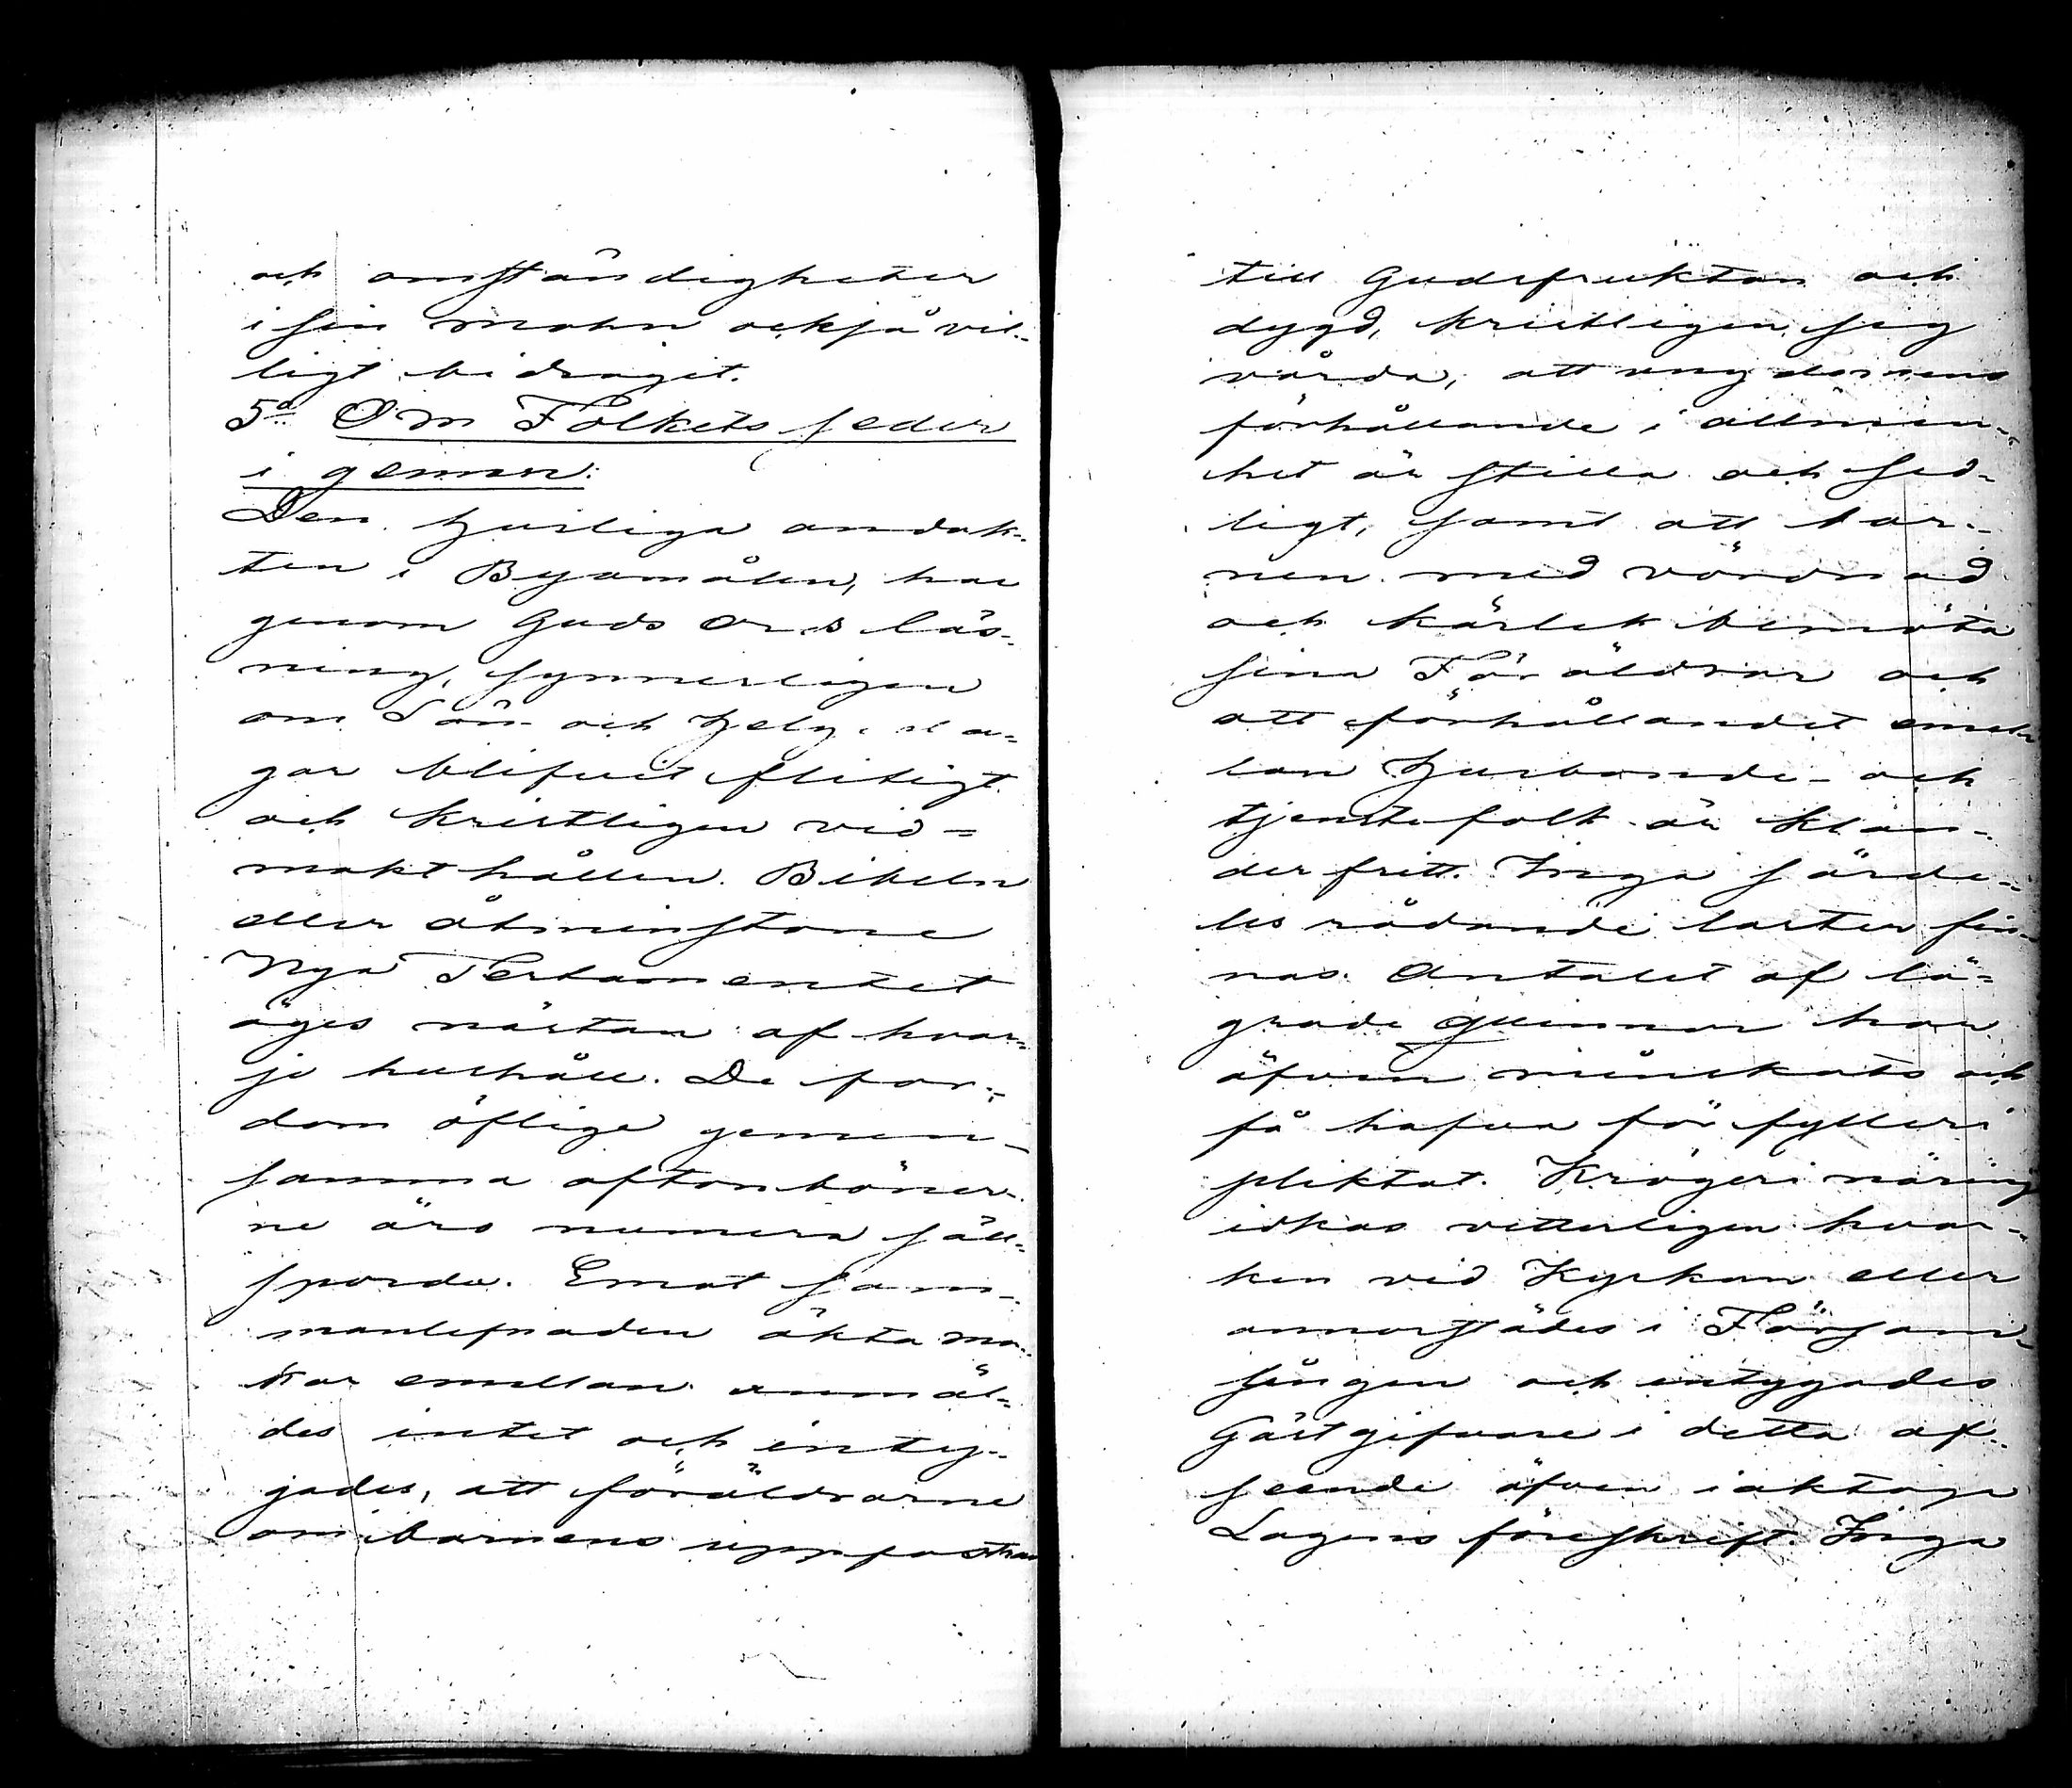 och omständigheter
i sin mohn också vil-
ligt bidragit.
5o Om Folkets seder
i gemen:
Den husliga andak-
ten i Byamålen, har
genom Guds Ords läs-
ning, synnerligen
om Sön- och Helgeda-
gar blifvit flitigt
och kristligen vid-
makthållen. Bibeln
eller åtminstone
Nya Testamentet
äges nästan af hvar-
je hushåll. De for-
dom öflige gemen-
samma aftonböner-
ne äro numera säll-
sporda. Emot sam-
manlefnaden äkta ma-
kar emellan anmäl-
des intet och inty-
gades, att föräldrarne
om barnens uppfostran
till Gudsfruktan och
dygd, kristligen sig
vårda, att ungdomens
förhållande i allmän-
het är stilla och sed-
ligt, samt att bar-
nen med vördnad
och kärlek bemöta
sina Föräldrar och
att förhållandet emel-
lan Husbonde- och
tjenstefolk är klan-
derfritt. Inga särde-
les rådande laster fin-
nas. Antalet af lä-
grade Quinnor har
äfven minskats och
få hafva för fylleri
pliktat. Krögeri näring
idkas vetterligen hvar-
ken vid Kyrkan eller
annorstädes i Försam-
lingen och intygades
Gästgifvare i detta af-
seende äfven iaktaga
Lagens föreskrift. Inga